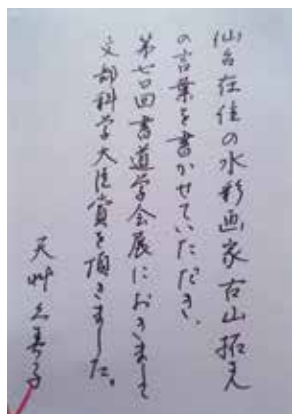 仙台在住の水彩画家古山拓さん
の言葉を書かせていただき、
第七回書道学会展におきまして
文部科学大臣賞を頂きました。
天艸